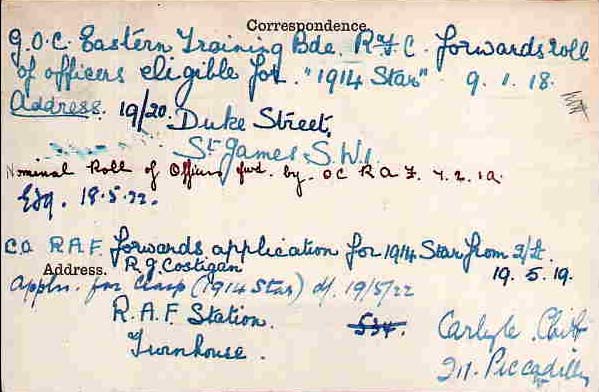 Correspondence.
G.O.C. Eastern Training Bde. R.F.C. forwards roll
of officers eligible for "1914 Star" 9.1.18.
Address. 19/20. Duke Street,
St James, S.W.1.
Nominal Roll of Officers fwd. by. OC R A F. 4.2.19.
18.5.22.
C.O. R.A.F. forwards application for 1914 Star from 2/Lt.
R.G. Costigan 19.5.19.
Address.
Appln. for Clasp (1914 Star) d/. 19/5/22
R.A.F. Station.
Turnhouse.
534.
Carlyle
211. Piccadilly